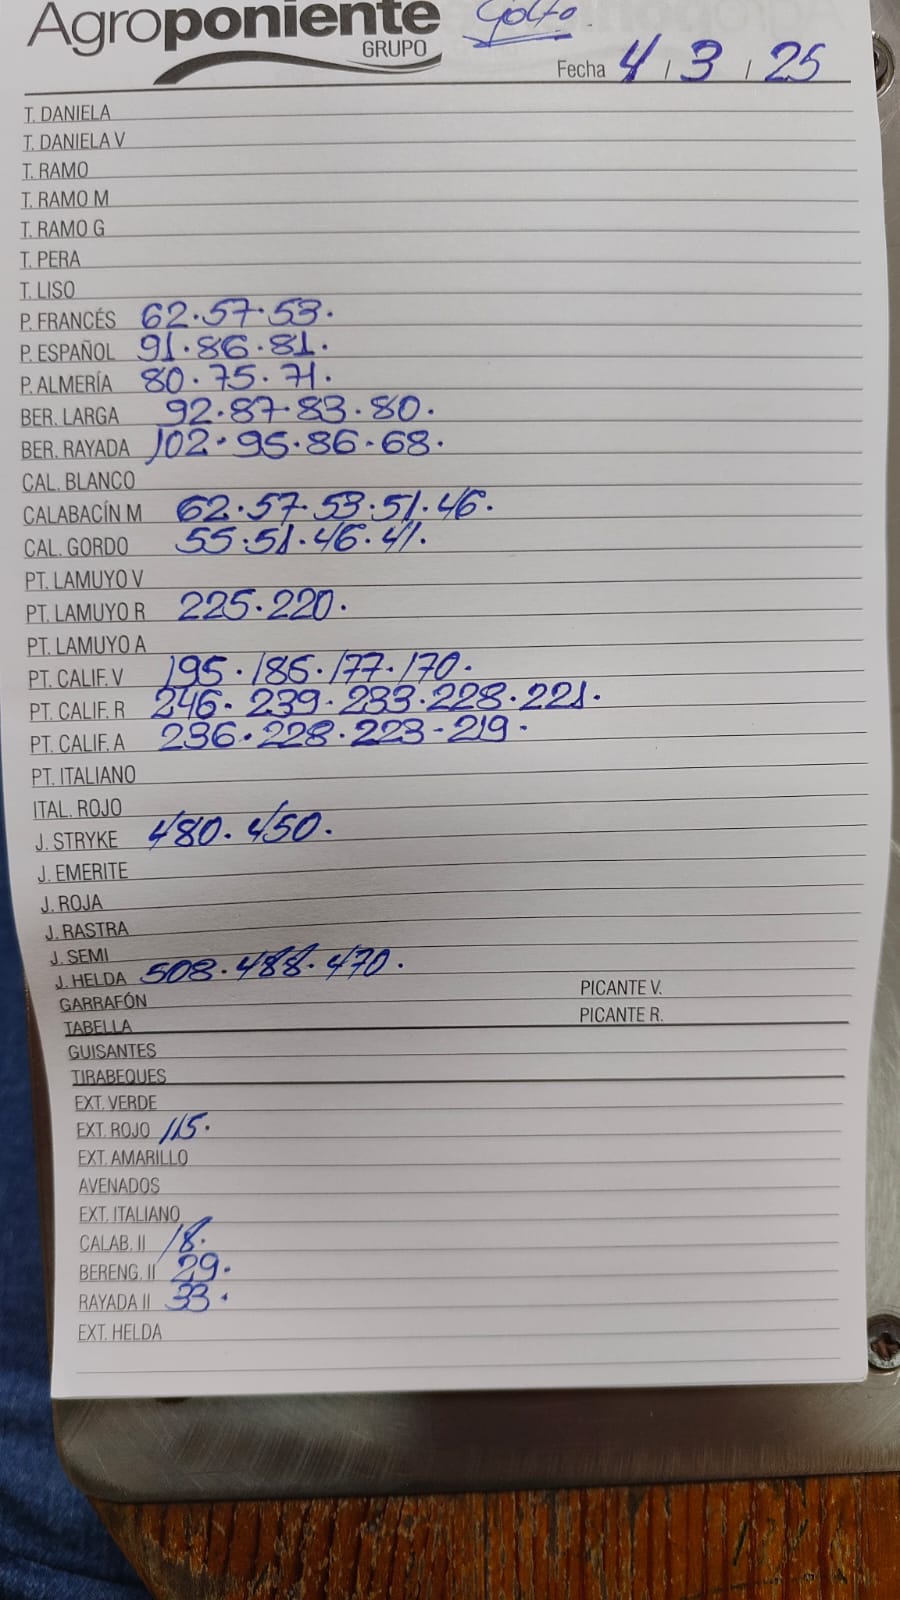 Agroponiente
GRUPO
Golfo.
Fecha 4 / 3 / 25
T. DANIELA
T. DANIELA V
T. RAMO
T. RAMO M
T. RAMO G
T. PERA
T. LISO
P. FRANCÉS 62.57.53.
P. ESPAÑOL 91.86.81.
P. ALMERÍA 80.75.71.
BER. LARGA 92.87.83.80.
BER. RAYADA 102.95.86.68.
CAL. BLANCO
CALABACÍN M 62.57.53.51.46.
CAL. GORDO 55.51.46.41.
PT. LAMUYO V
PT. LAMUYO R 225.220.
PT. LAMUYO A
PT. CALIF. V 195.186.177.170.
PT. CALIF. R 246.239.233.228.221.
PT. CALIF. A 236.228.223-219.
PT. ITALIANO
ITAL. ROJO
J. STRYKE 480.450.
J. EMERITE
J. ROJA
J. RASTRA
J. SEMI
J. HELDA 508.488.470.
GARRAFÓN PICANTE V.
TABELLA PICANTE R.
GUISANTES
TIRABEQUES
EXT. VERDE
EXT. ROJO 115.
EXT. AMARILLO
AVENADOS
EXT. ITALIANO
CALAB. II 18.
BERENG. II 29.
RAYADA II 33.
EXT. HELDA